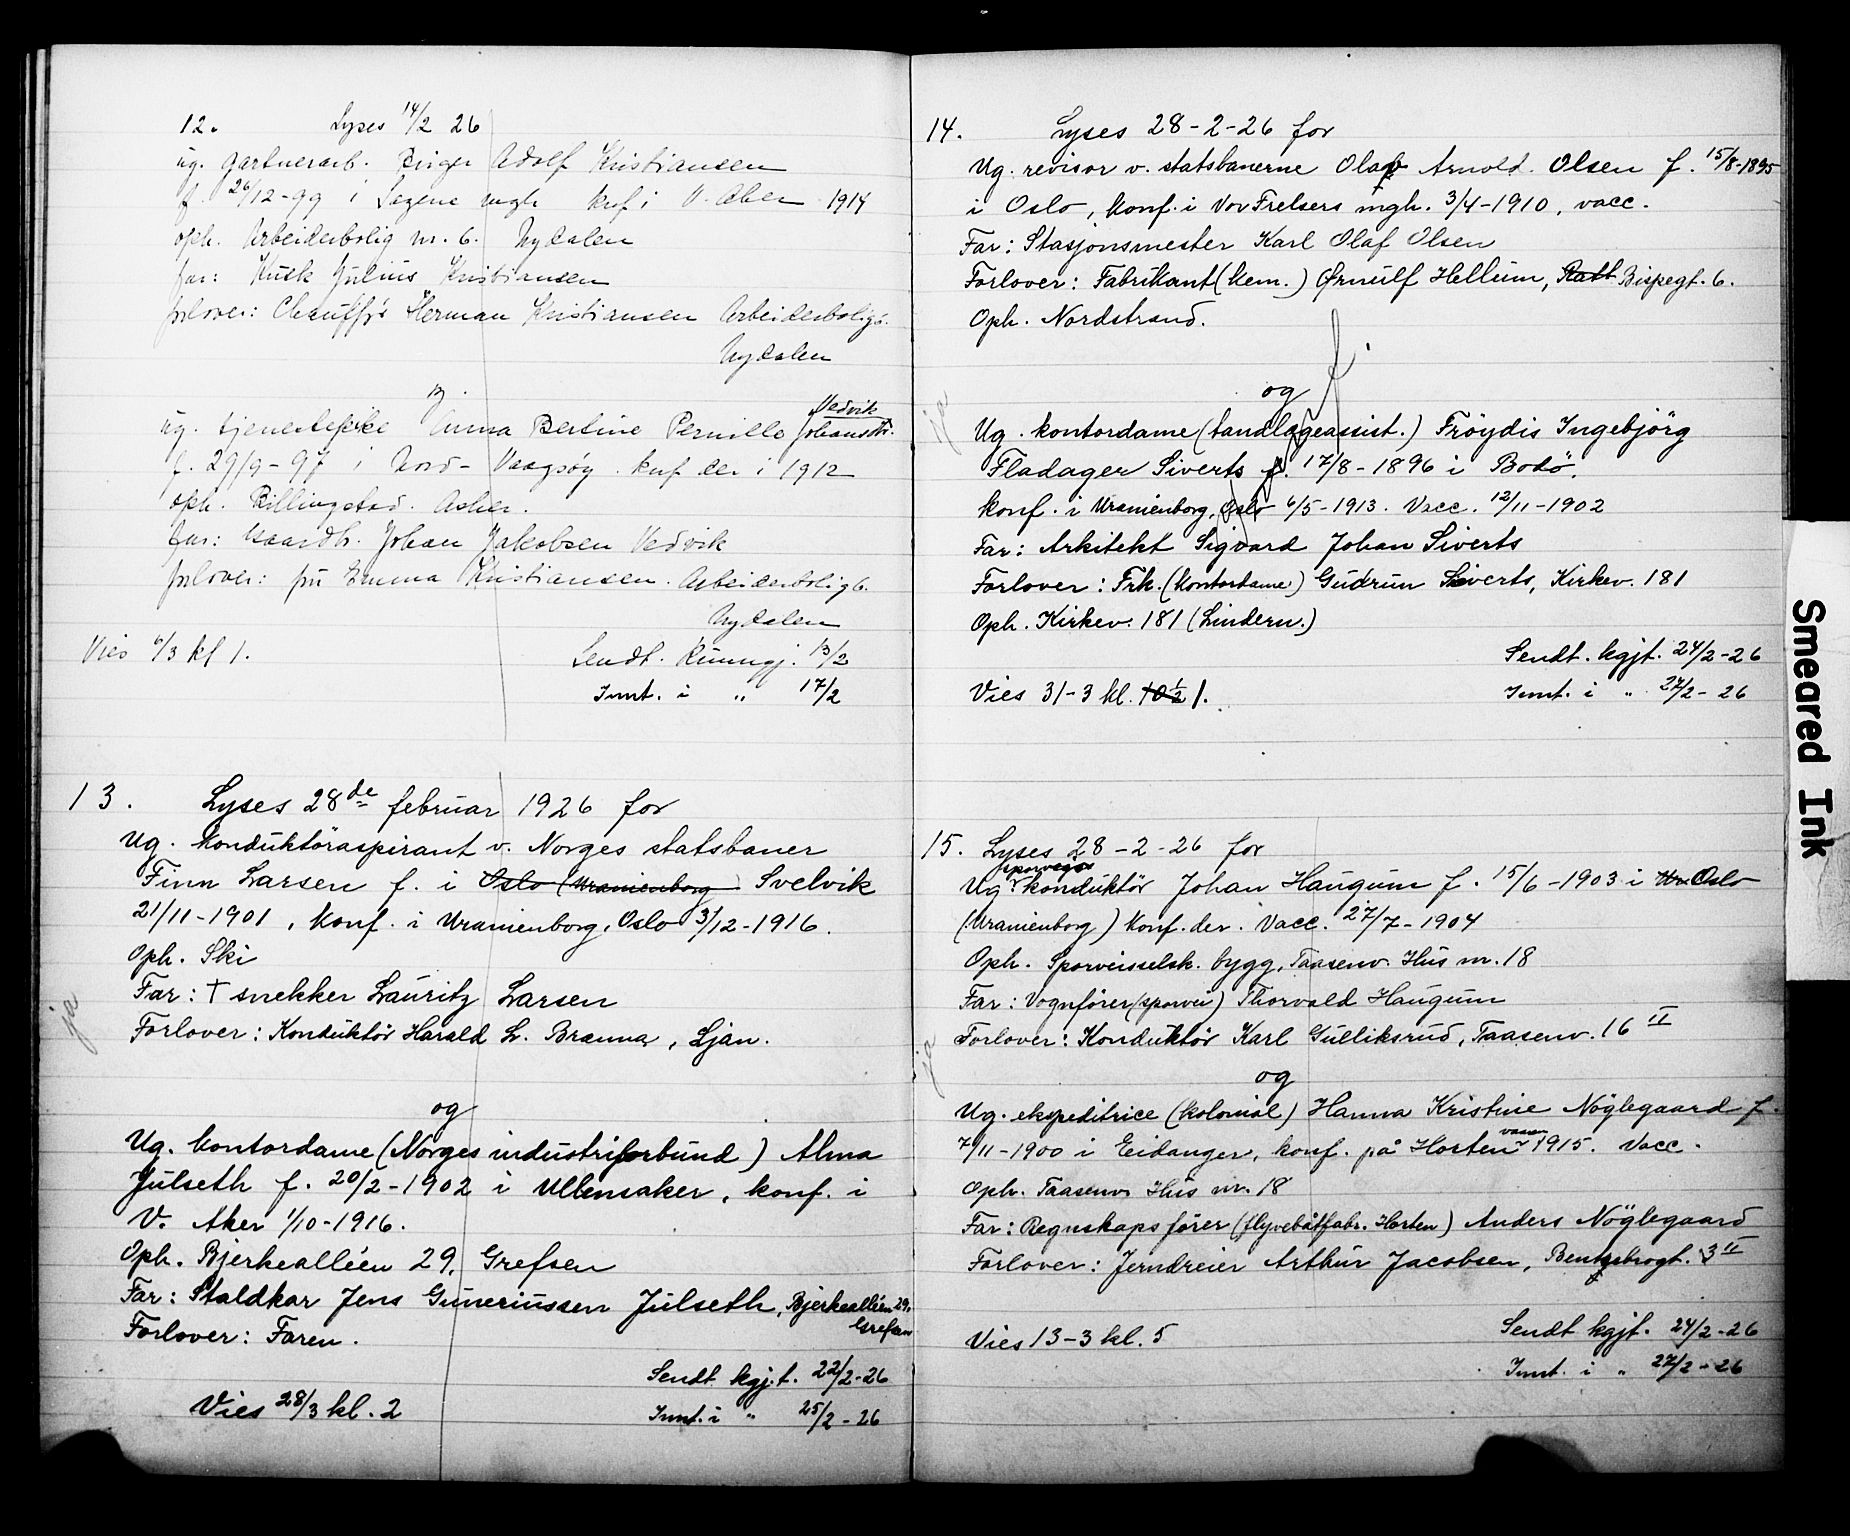 12. Lyses 14/2 26
ug. gartnerarb. Birger Adolf Kristiansen
f. 26/12-99 i Sagene mgh konf i V. Aker 1914
oph. Arbeiderbolig nr. 6. Nydalen
far: Kusk Julius Kristiansen
forlover: Chauffør Herman Kristiansen Arbeiderbolig 6.
Nydalen
og
Vedvik
ug. tjenestepike Anna Bertine Pernille Johansdtr.
f. 29/9-97 i Nord-Vaagsøy. konf der i 1912
oph. Billingstad. Asker.
far: Gaardbr. Johan Jakobsen Vedvik
forlover: fru Emma Kristiansen. Arbeiderbolig 6.
Nydalen
Vies 6/3 kl 1. Sendt. Kunngj. 13/2
Innt. i " 17/2
13. Lyses 28de februar 1926 for
Ug. Konduktöraspirant v. Norges statsbaner
Finn Larsen f. i Oslo (Uranienborg) Svelvik
21/11-1901, Konf. i Uranienborg, Oslo 3/12-1916.
Oph. Ski
Far: † snekker Lauritz Larsen
ja
Forlover: Konduktör Harald L. Brænna, Ljan.
og
Ug. kontordame (Norges industriforbund) Alma
Julseth f. 20/2-1902 i Ullensaker, konf. i
V. Aker 1/10-1916.
Oph. Bjerkealléen 29, Grefsen
Far: Staldkar Jens Guneriussen Julseth, Bjerkealléen 29.
Grefsen
Forlover: Faren.
Sendt kgj.t. 22/2-26
Vies 28/3 kl. 2 Innt. i " 25/2-26
14. Lyses 28-2-26 for
Ug. revisor v. statsbanerne Olav Arnold Olsen f. 15/8-1895
i Oslo, konf. i Vor Frelsers mgh. 3/4-1910, vacc.
Far: Stasjonsmester Karl Olaf Olsen
Forlover: Fabrikant (kem.) Ørnulf Hellum, Bispegt. 6.
Oph. Nordstrand.
f.
og
ja
Ug. kontordame (tandlægeassist.) Frøydis Ingebjörg
Fladager Siverts f. 17/8-1896 i Bodö.
konf. i Uranienborg, Oslo 6/5-1913. Vacc. 12/11-1902
Far: Arkitekt Sigvard Johan Siverts
Forlover: Frk. (kontordame) Gudrun Siverts, Kirkev. 181
Oph. Kirkev. 181 (Lindern.)
Sendt. kgjt. 24/2-26
Vies 31-3 kl. 10 1/2 1. Innt. i " 27/2-26
15. Lyses 28-2-26 for
sporveis
Ug. konduktör Johan Haugum f. 15/6-1903 i Oslo
(Uranienborg) Konf. der. Vacc. 27/7-1904
Oph. Sporveisselsk. bygg, Taasenv. Hus nr. 18
Far: Vognfører (sporvei) Thorvald Haugum
Forlover: Konduktör Karl Gulliksrud, Taasenv. 16 II
ja
og
Ug. ekspeditrice (kolonial) Hanna Kristine Nöglegaard f.
7/11-1900 i Eidanger, konf. på Horten 1915. Vacc.
Oph. Taasenv. Hus nr. 18
Far: Regnskapsfører (flyvebåtfabr. Horten) Anders Nöglegaard
Forlover: Jerndreier Arthur Jacobsen, Bentsebrogt. 3 II
Sendt kgjt. 24/2-26
Vies 13-3 kl. 5 Innt. i " 27/2-26
Smeared Ink